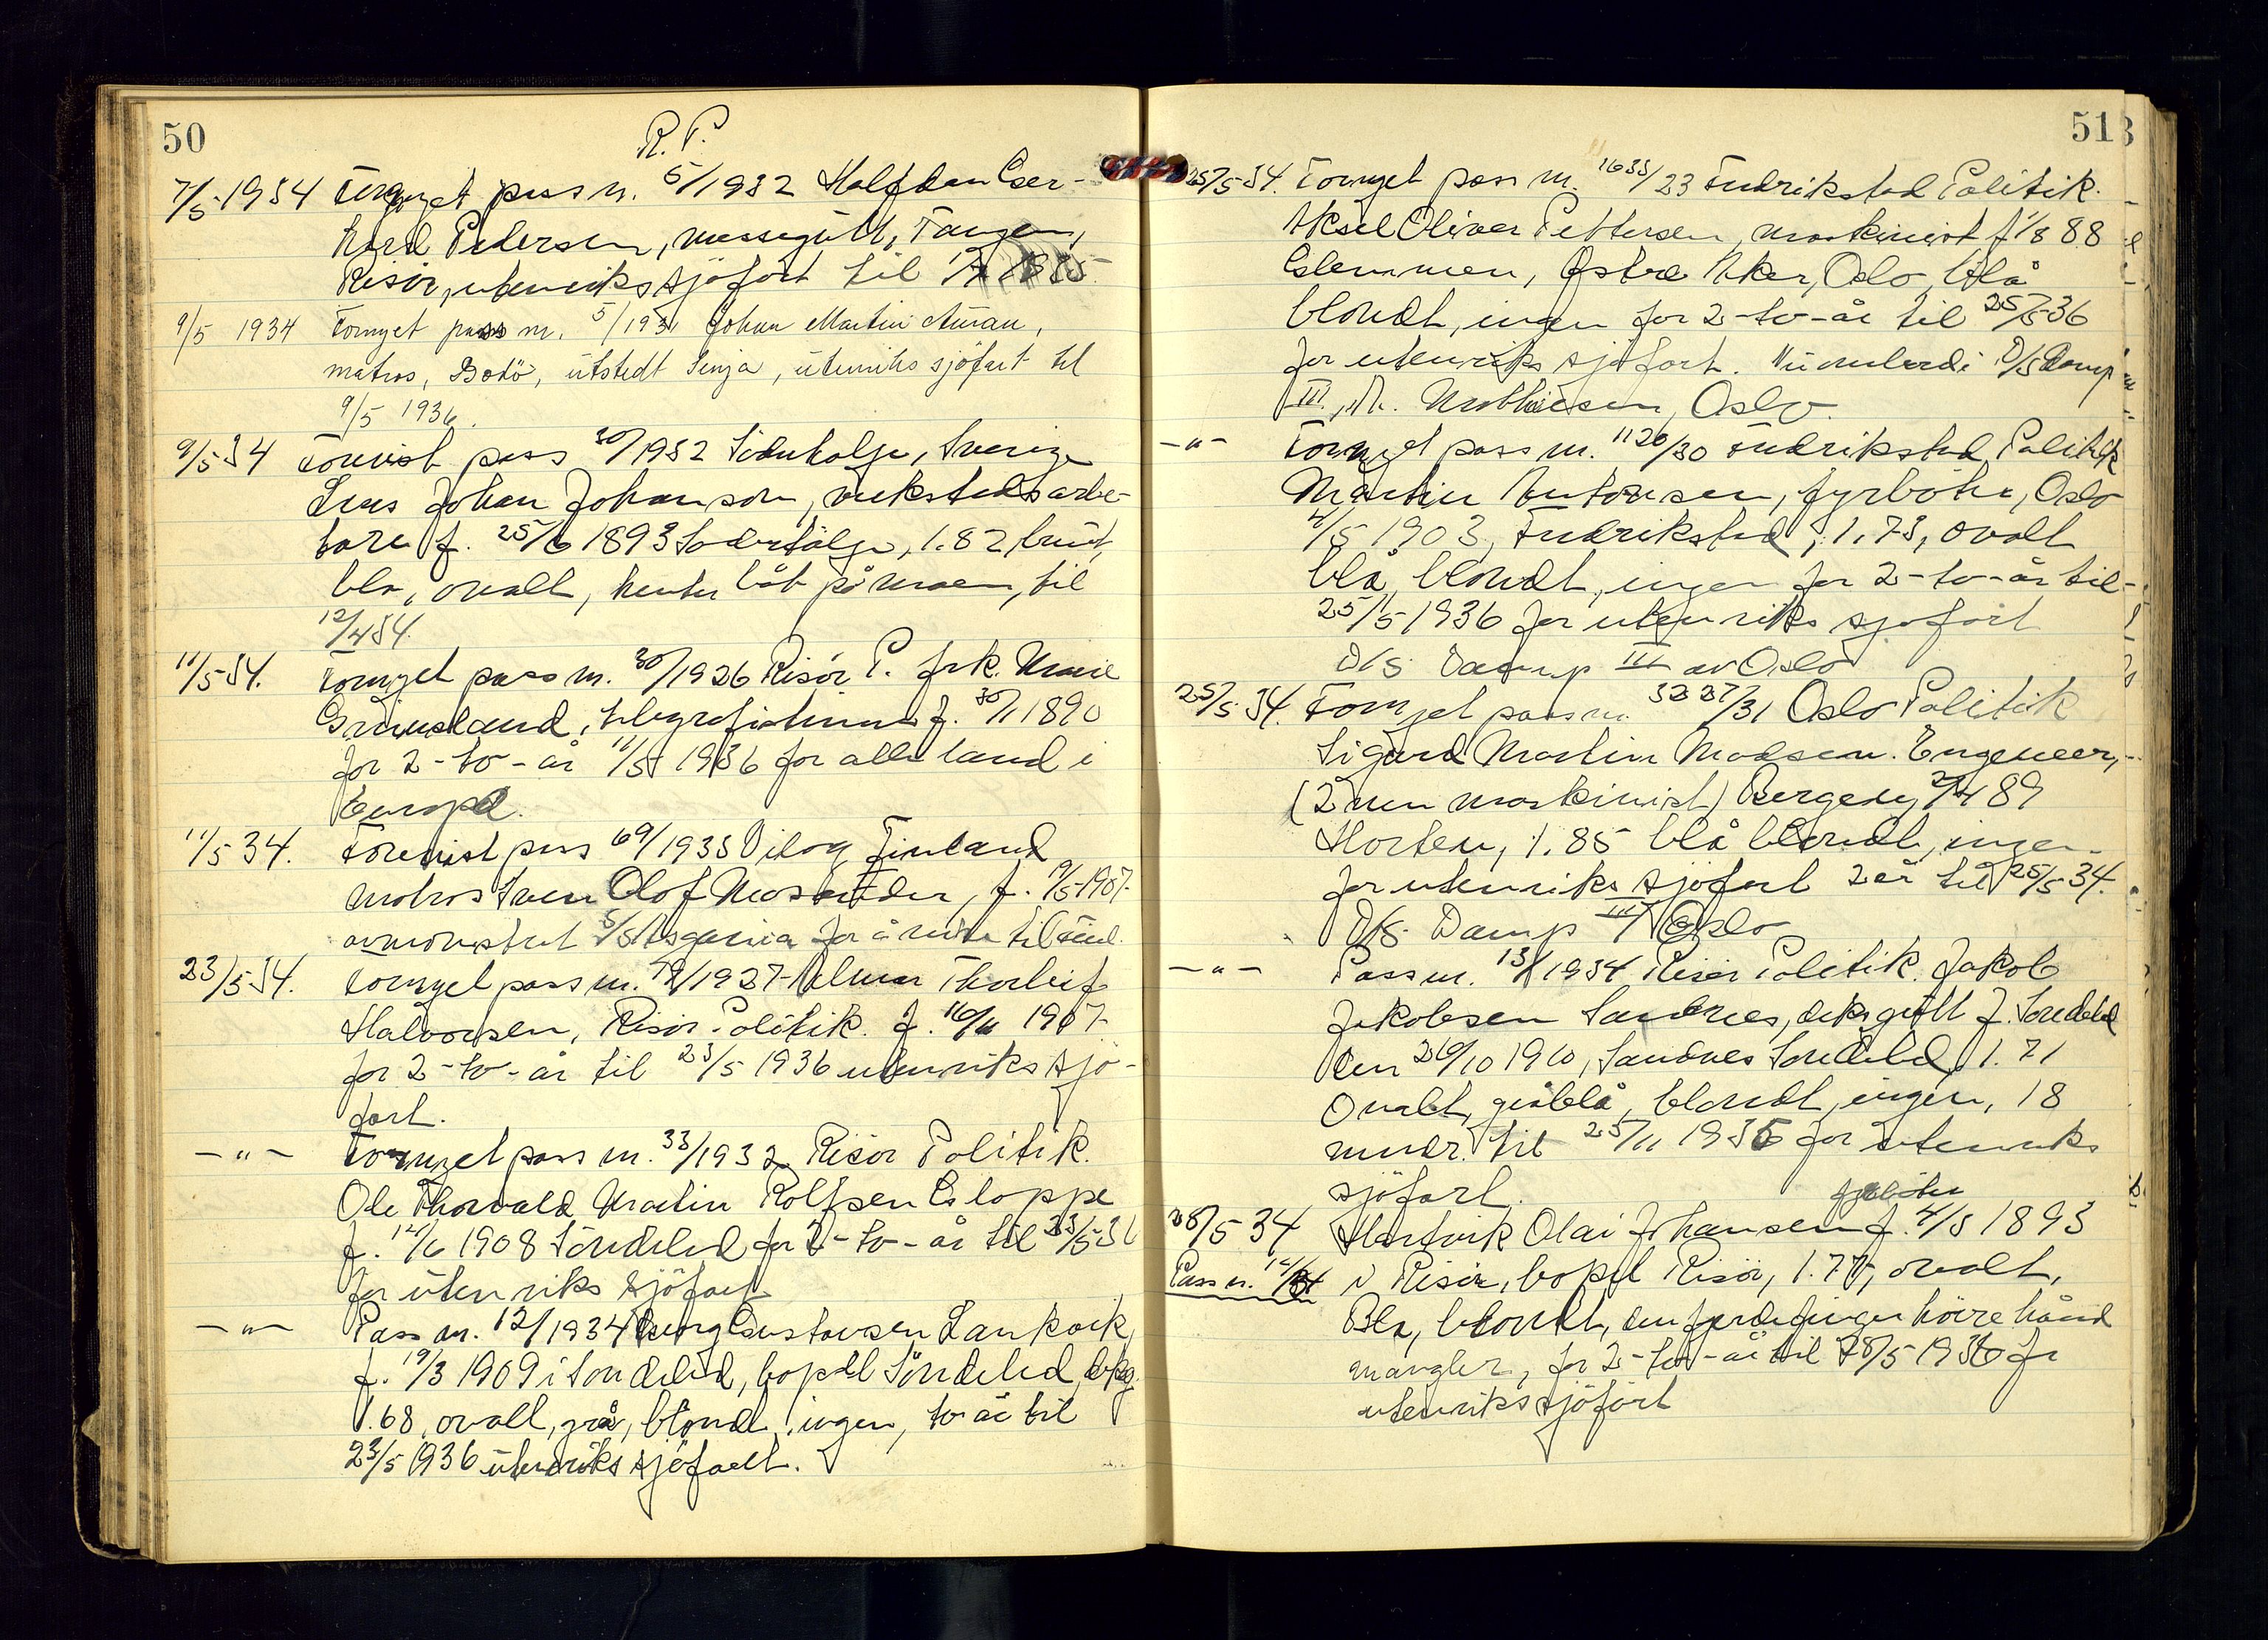 50
R. P.
7/5-1934 Fornyet pass nr. 5/1932 Halfdan Ger-
hard Pedersen, messegutt, Tangen,
Risör, utenriks sjöfart til
9/5 1934 Fornyet pass nr. 5/1931 Johan Martin
matros, Bodö, utstedt Senja, utenriks sjöfart til
9/5 1936.
9/5-34 Forevist pass 30/1932 Södertälge, Sverige
Johan Johanson, verkstedsarbe-
tare f. 25/6 1893 Södertälge, 1.82, brunt,
bla, ovalt, henter båt på Moen, til
12/4 34.
11/5-34. Fornyet pass nr. 30/1926 Risör P. frk.
Grimsland, telegrafistinne f. 30/1 1890
for 2-to-år 11/5 1936 for alle land i
Europa.
11/5 34. Forevist pass 69/1933 Finland
matros Sven Olof f. 9/5-1907
avmönstret for å reise til
23/5-34. Fornyet pass nr. 1927 Thorleif
Halvorsen, Risör Politik. f. 16/11 1907
for 2-to-år til 23/5 1936 utenriks sjö-
fart.
-"- Fornyet pass nr. 33/1932 Risör Politik.
Ole Thorvald Martin Rolfsen
f. 12/6 1908 Söndeled for 2-to-år til 23/5-36
for utenriks sjöfart
-"- Pass nr. 12/1934 Georg Gustavsen
f. 19/3 1909 i Söndeled, bopel Söndeled,
1.68, ovalt, grå, blondt, ingen, to år til
23/5 1936 utenriks sjöfart.
51
25/5-34. Fornyet pass nr. 1633/23 Fredrikstad Politik.
Aksel Oliver Pettersen, maskinist f 1/8 88
Glemmen, Östre Aker, Oslo, blå
blondt, ingen for 2-to-år til 25/5-36
for utenriks sjöfart. D/S Damp
III, Mathiesen, Oslo.
-"- Fornyet pass nr. 1120/30 Fredrikstad Politik
Martin Antonsen, fyrböter, Oslo
4/5 1903, Fredrikstad, 1.73, ovalt
blå, blondt, ingen for 2-to-år til
25/5 1936 for utenriks sjöfart
D/S Damp III av Oslo
25/5 34. Fornyet pass nr. 3237/31 Oslo Politik
Sigurd Martin Madsen. Engeneer,
(2nen maskinist) 89
Horten, 1.85 blå blondt, ingen
for utenriks sjöfart 2 år til 25/5 34.
D/S Damp III Oslo
-"- Pass nr. 13/1934 Risör Politik. Jakob
Jakobsen Sandnes, deksgutt f. Söndeled
den 26/10 1910, Sandnes Söndeled, 1.71
Ovalt, gråblå, blondt, ingen, 18
mndr. til 25/11 1935 for utenriks
sjöfart.
fyrböter
28/5 34 Hartvik Olai Johansen f. 4/5 1893
Pass nr. 14/34 i Risör, bopel Risör, 1.77, ovalt,
Bla, blondt, den fjerde finger höire hånd
mangler, for 2-to-år til 28/5 1936 for
utenriks sjöfart